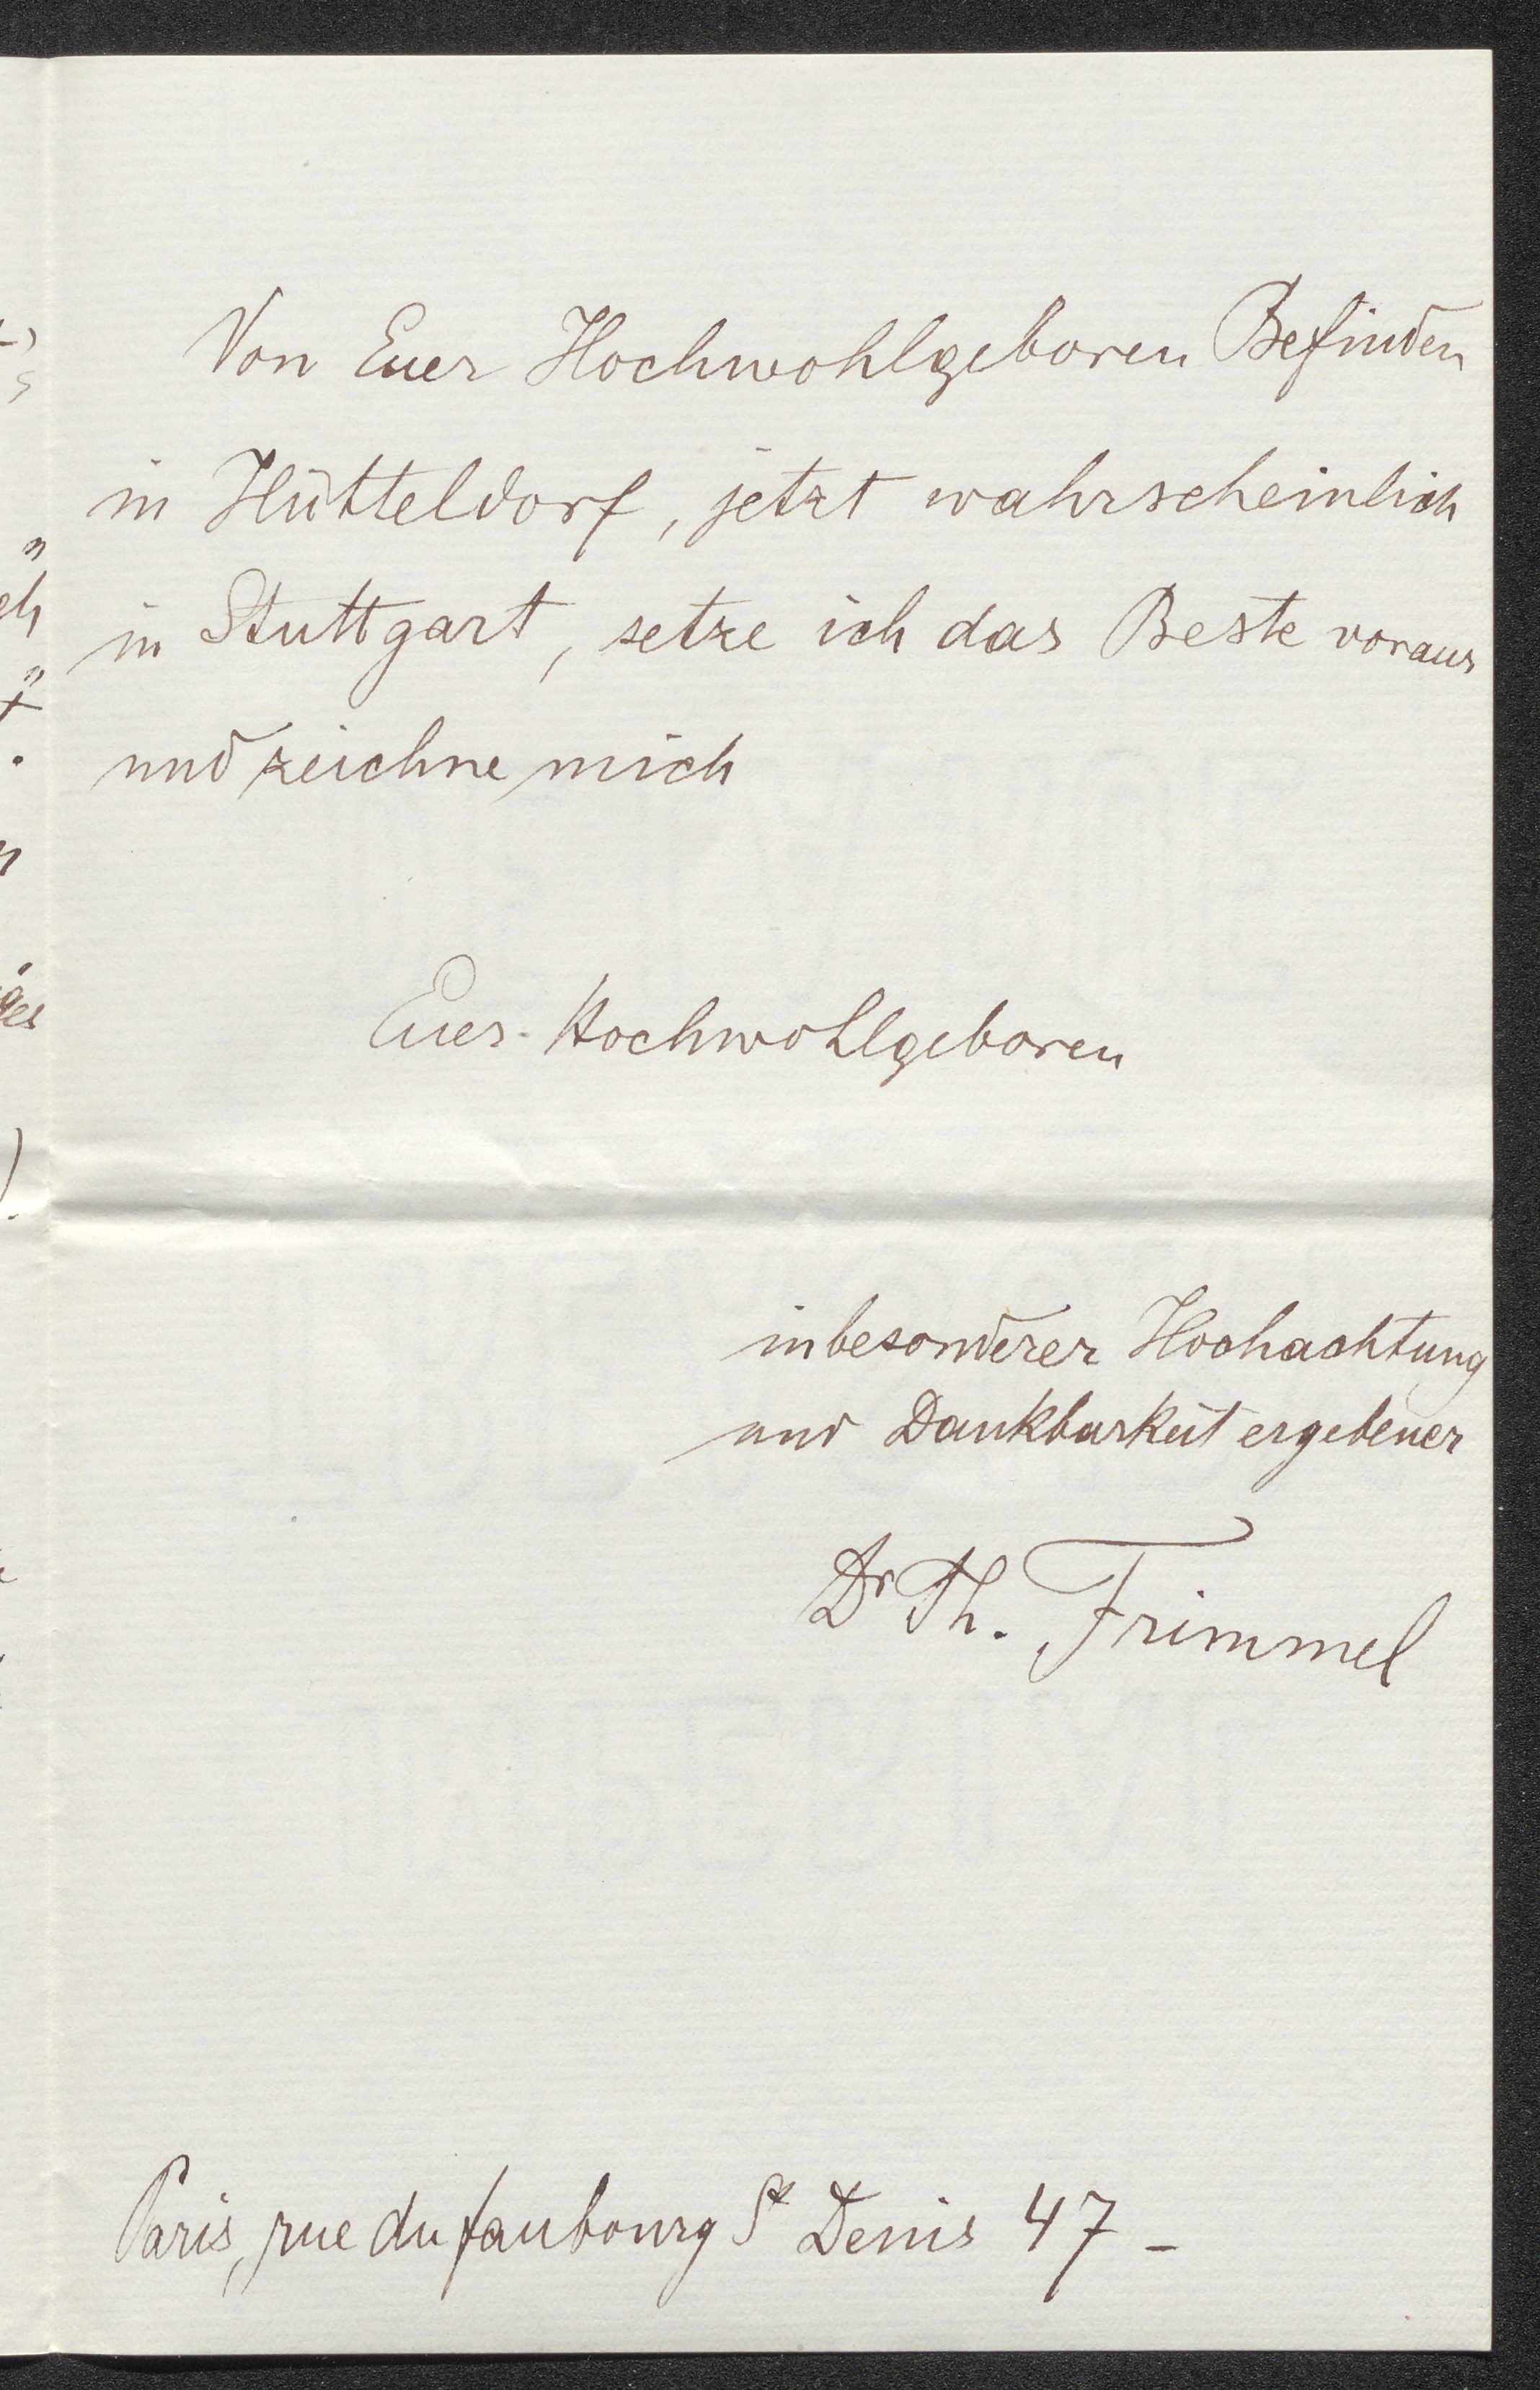 Von Euer Hochwohlgeboren Befinden
in Hütteldorf, jetzt wahrscheinlich
in Stuttgart, setze ich das Beste voraus
und zeichne mich
Euer Hochwohlgeboren
in besonderer Hochachtung
und Dankbarkeit ergebener
Dr Th. Frimmel
Paris, rue du faubourg St Denis 47 –